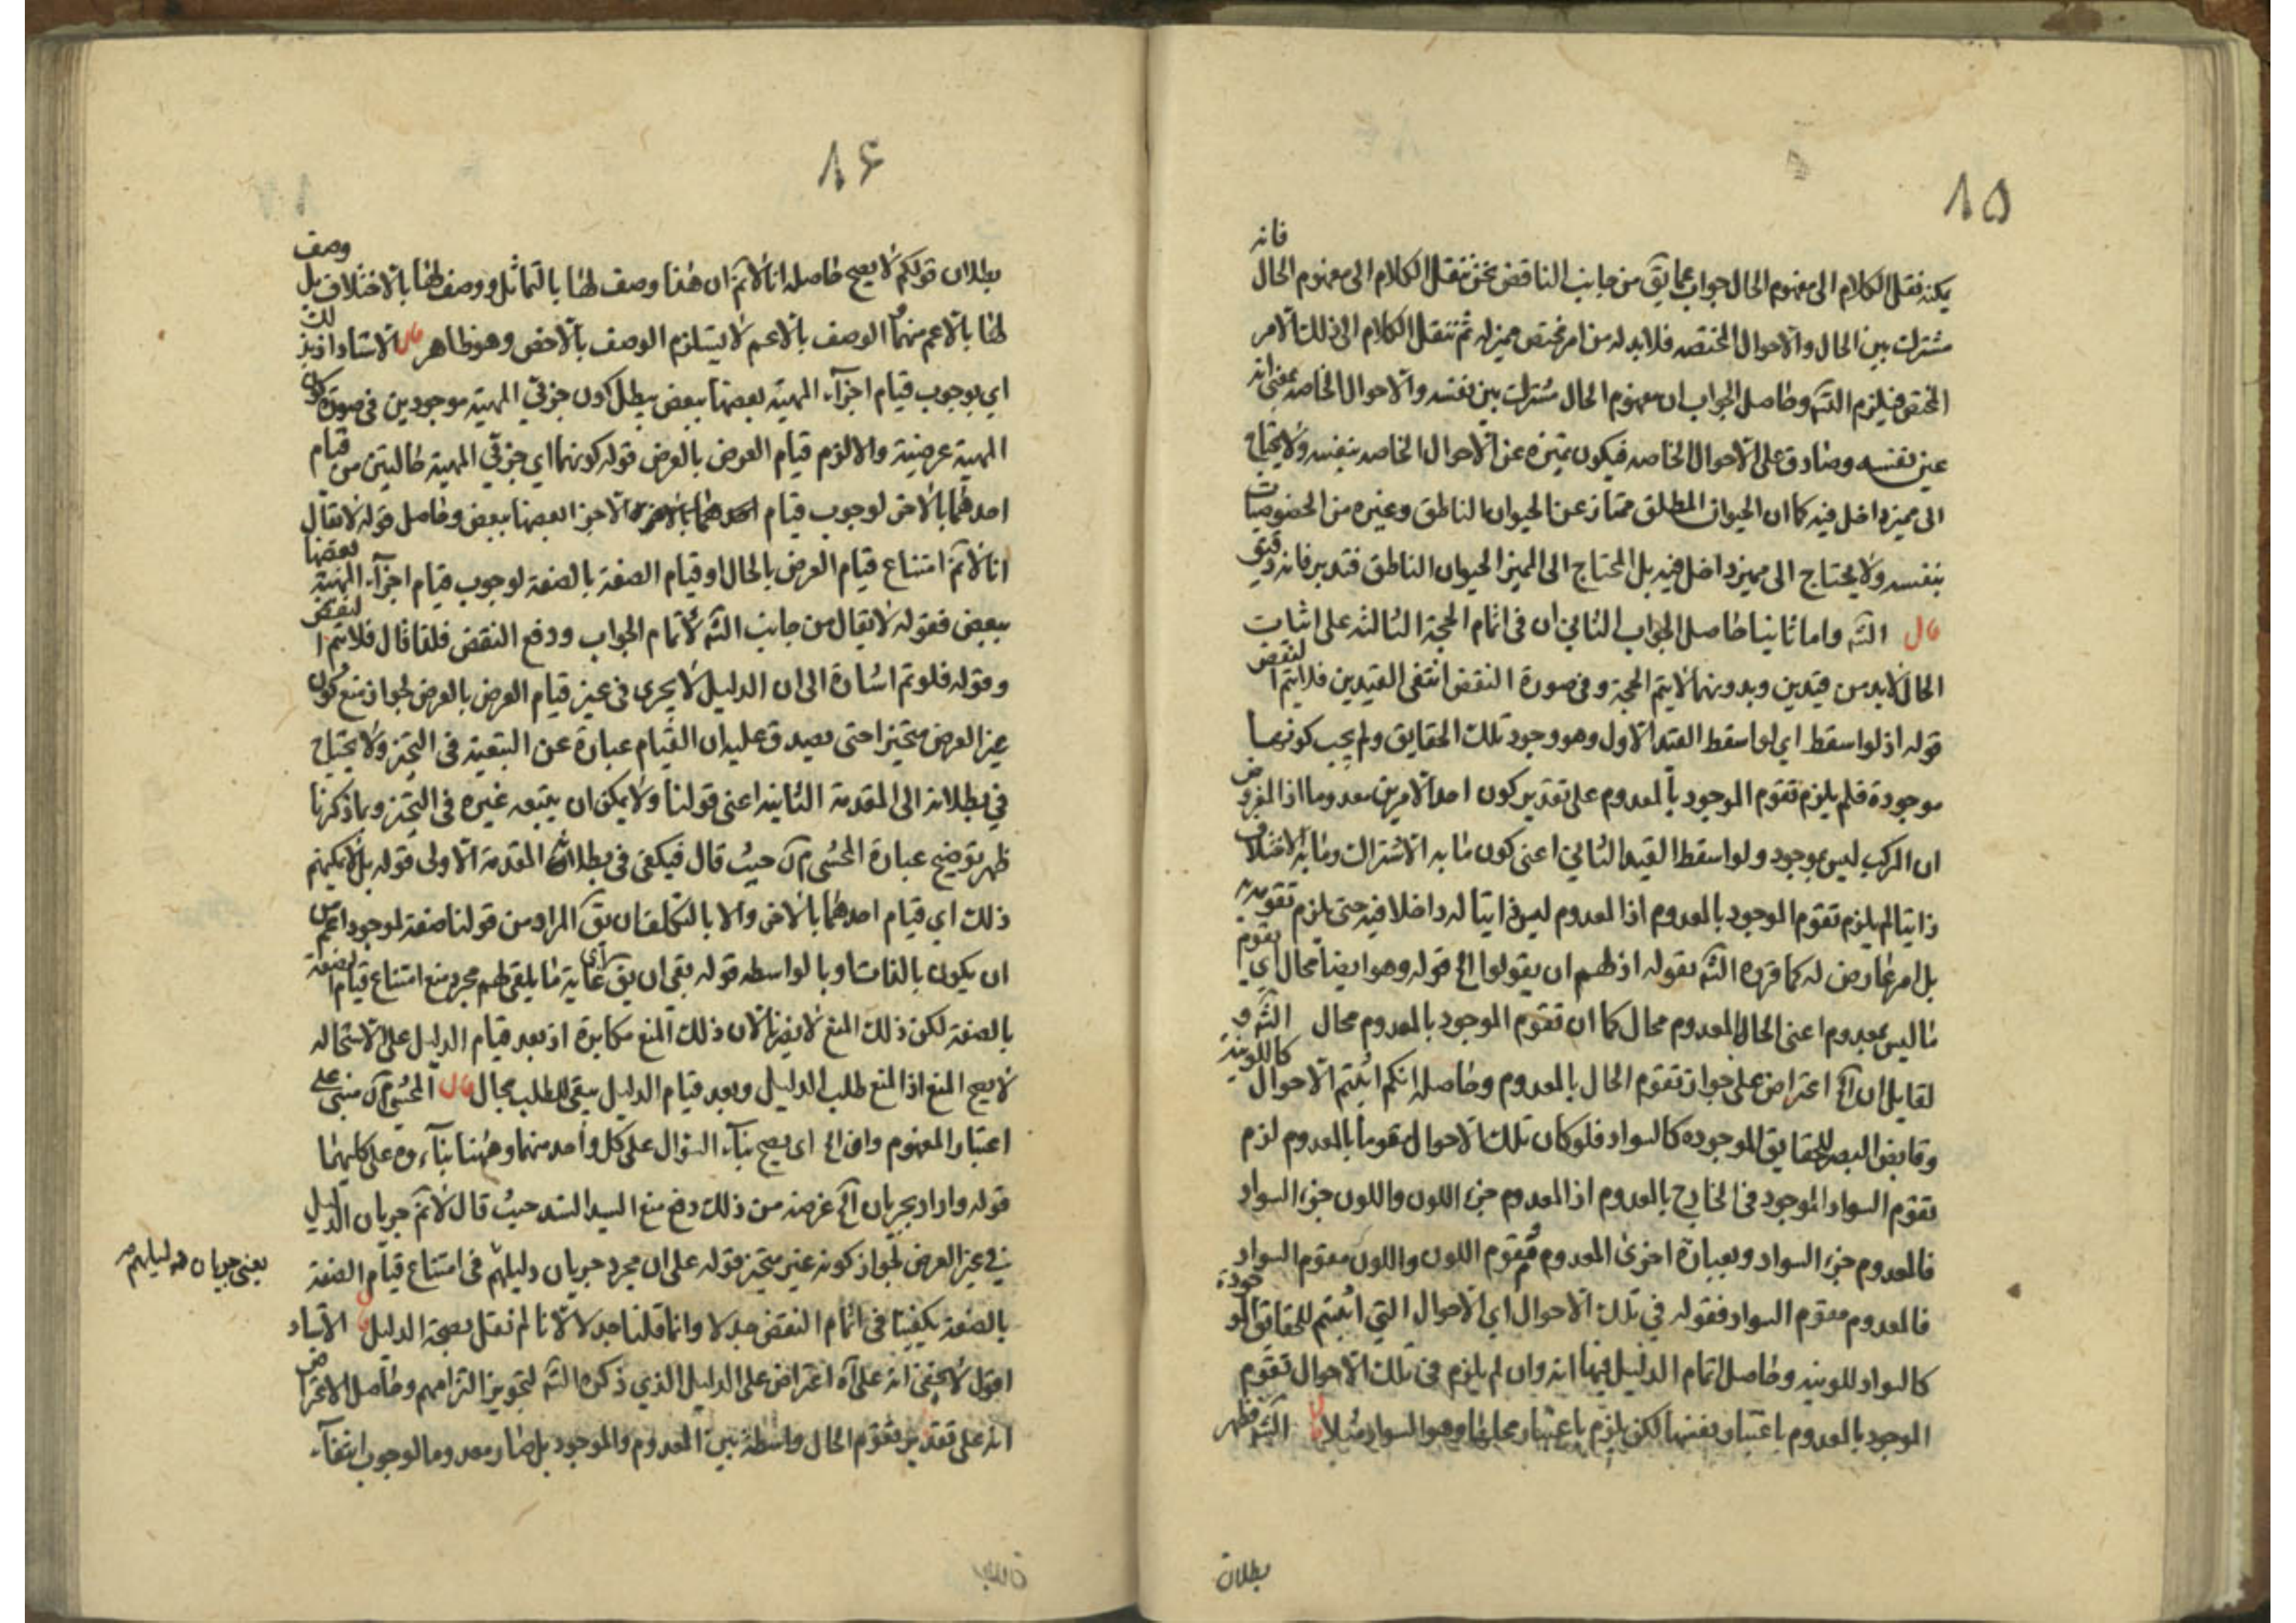 ١٥
يمكنه فنقل الكلام الى مفهوم الحال جواب عما يق من جانب الناقض نحن ننقل الكلام الى مفهوم الحال فانه
مشترك بين الحال والاحوال المختصه فلابد له من امر مختص مميز له ثم ننقل الكلام الى ذلك الامر
المختص فيلزم التسه وحاصل الجواب ان مفهوم الحال مشترك بين نفسه والاحوال الخاصه بمعنى انه
عين نفسه وصادق على الاحوال الخاصه فيكون تميزه عن الاحوال الخاصه بنفسه ولا يحتاج
الى مميز داخل فيه كما ان الحيوان المطلق ممتاز عن الحيوان الناطق وغيره من الخصوصيات
بنفسه ولا يحتاج الى مميز داخل فيه بل المحتاج الى المميز الحيوان الناطق فتدبر فانه دقيق
قال الشه واما ثانيا حاصل الجواب الثاني ان في اتمام الحجة الثالثه على اثبات
الحال لابد من قيدين وبدونهما لا يتم الحجة وفي صورة النقض انتفى القيدين فلا يتم النقض
قوله اذ لو اسقط اي لو اسقط القيد الاول وهو وجود تلك الحقايق ولم يجب كونها
موجودة فلم يلزم تقوم الموجود بالمعدوم على تقدير كون احد الامرين معدوما اذ المفروض
ان المركب ليس بموجود ولو اسقط القيد الثاني اعني كون ما به الاشتراك وما به الاختلاف
ذاتيا لم يلزم تقوم الموجود بالمعدوم اذ المعدوم ليس ذاتيا له داخلا فيه حتى يلزم تقومه به
بل امر عارض له كما قرره الشه بقوله اذ لهم ان يقولوا الخ قوله وهو ايضا محال اي تقوم
ما ليس بمعدوم اعني الحال بالمعدوم محال كما ان تقوم الموجود بالمعدوم محال الشه و
لقايل ان الخ اعتراض على جواز تقوم الحال بالمعدوم وحاصله انكم اثبتم الاحوال كاللونية
وقابض البصر للحقايق الموجوده كالسواد فلو كان تلك الاحوال متقوما بالمعدوم لزم
تقوم السواد الموجود في الخارج بالمعدوم اذ المعدوم جزء اللون واللون جزء السواد
فالمعدوم جزء السواد وبعبارة اخرى المعدوم مقوم اللون واللون مقوم السواد
فالمعدوم مقوم السواد فقوله في تلك الاحوال اي الاحوال التي اثبتم للحقايق الموجودة
كالسواد للونيه وحاصل اتمام الدليل فيها انه وان لم يلزم في تلك الاحوال تقوم
الموجود بالمعدوم باعتبار نفسها لكن يلزم باعتبار محلها وهو السواد مثلا قال الشه فظهر
بطلان
١۶
بطلان قولكم لا يصح حاصله انا لانم ان هذا وصف لها بالتماثل ووصف لها بالاختلاف بل وصف
لها بالاعم منهما الوصف بالاعم لا يستلزم الوصف بالاخص وهو ظاهر قال الاستاد اذ بذلك
اي بوجوب قيام اجزآء المهية بعضها ببعض يبطل كون جزئي المهية موجودين في صورة كون
المهية عرضية والا لزم قيام العرض بالعرض قوله كونهما اي جزئي المهية حاليتين من قيام
احدهما بالاخر لوجوب قيام الاجزا بعضها ببعض وحاصل قوله لا يقال
انا لانم امتناع قيام العرض بالحال او قيام الصفة بالصفة لوجوب قيام اجزآء المهية بعضها
ببعض فقوله لا يقال من جانب الشه لاتمام الجواب ودفع النقض فلقا قال فلا يتم النقض
وقوله فلو تم اشارة الى ان الدليل لا يجري في غير قيام العرض بالعرض لجواز منع كون
غير العرض متحيزا حتى يصدق عليه ان القيام عبارة عن التبعية في التحيز ولا يحتاج
في بطلانه الى المقدمة الثانية اعني قولنا ولا يمكن ان يتبعه غيره في التحيز وبما ذكرنا
ظهر توضيح عبارة المحشي حيث قال فيكفي في بطلان المقدمة الاولى قوله بل لا يمكنهم
ذلك اي قيام احدهما بالاخر والا بالتكلف ان يق المراد من قولنا صفة لموجود اعم من
ان يكون بالذات او بالواسطه قوله بقي ان يق اي غاية ما بقي لهم مجرد منع امتناع قيام الصفة
بالصفة لكن ذلك المنع لا يضرنا لان ذلك المنع مكابرة اذ بعد قيام الدليل على الاستحاله
لا يصح المنع اذ المنع طلب الدليل وبعد قيام الدليل يبقى للطلب مجال قال المحشي مبني على
اعتبار المفهوم وافراد اي يصح بناء السؤال على كل واحد منهما وههنا بنآءه على كليهما
قوله واراد بجريان الخ غرضه من ذلك دفع منع السيد السند حيث قال لانم جريان الدليل
في غير العرض لجواز كونه غير متحيز قوله على ان مجرد جريان دليلهم في امتناع قيام الصفة
يعنى جريان دليلهم
بالصفة يكفينا في اتمام النقض جدلا وانما قلنا جدلا لانا لم نقل بصحة الدليل قال الاستاد
اقول لا يخفى انه على آه اعتراض على الدليل الذي ذكره الشه لتجويز التزامهم وحاصل الاعتراض
انه على تقدير تقوم الحال واسطة بين المعدوم والموجود بل صار معدوما لوجوب انتفآء